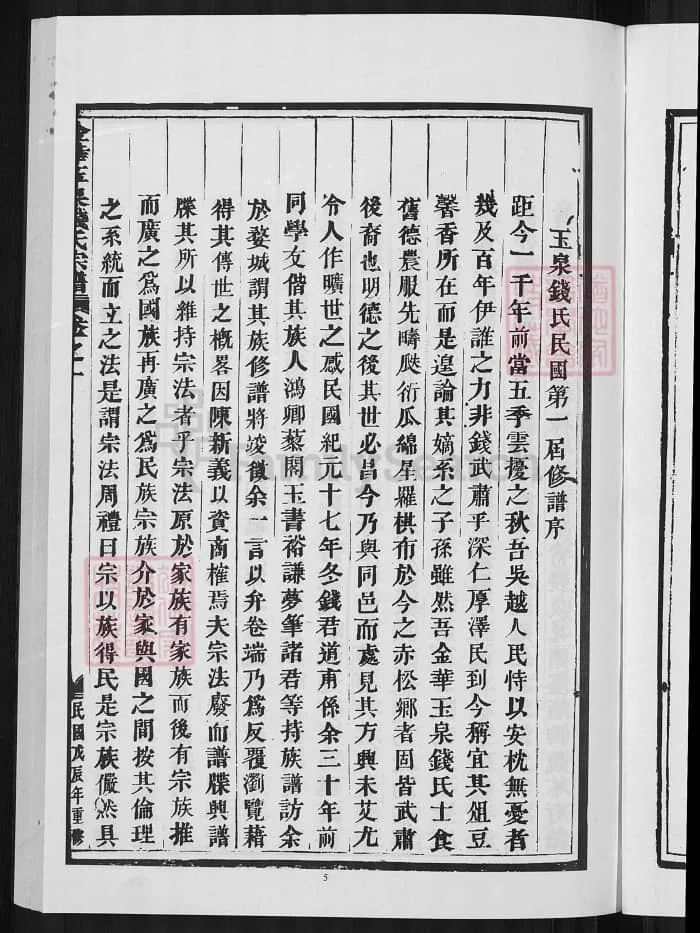 玉泉錢氏民國第一屆修譜序
距今一千年前當五季雲擾之秋吾吳越人民恃以安枕無憂者
幾及百年伊誰之力非錢武肅乎深仁厚澤民到今稱宜其俎豆
馨香所在而是遑論其嫡系之子孫雖然吾金華玉泉錢氏士食
舊德農服先疇瓞衍瓜綿星羅棋布於今之赤松鄉者固皆武肅
後裔也明德之後其世必昌今乃與同邑而處見其方興未艾尤
令人作曠世之感民國紀元十七年冬錢君道甫係余三十年前
同學友偕其族人鴻卿慕閣玉書裕謙夢筆諸君等持族譜訪余
於婺城謂其族修譜將竣徵余一言以弁卷端乃為反覆瀏覽藉
得其傳世之概畧因陳新義以資商榷焉夫宗法廢而譜牒興譜
牒其所以維持宗法者乎宗法原於家族有家族而後有宗族推
而廣之為國族再廣之為民族宗族介於家與國之間按其倫理
之系統而立之法是謂宗法周禮曰宗以族得民是宗族儼然具
金華玉泉錢氏宗譜 卷之一
民國戊辰年重修
5
FamilySearch